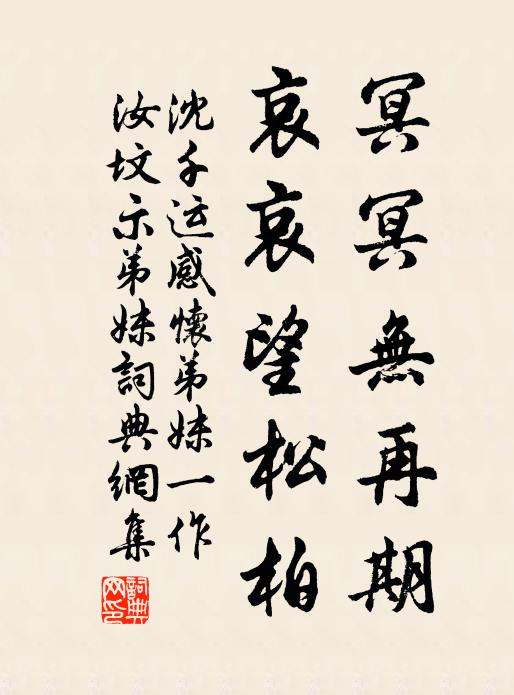 冥冥無再期
哀哀望松柏
沈千运感懷弟妹一作
汝坟示弟妹詞典網集
詞典網印